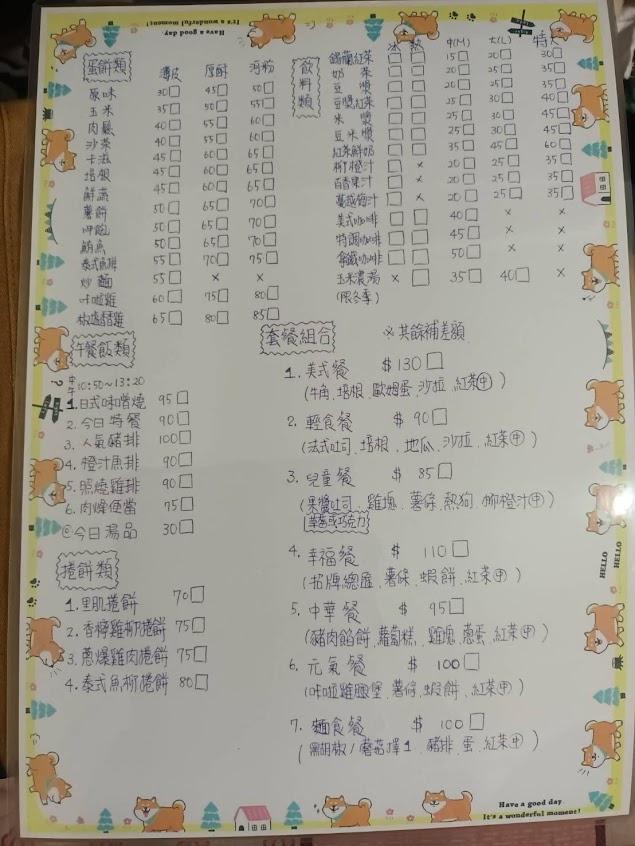 It's a wonderful moment!
Have a good day
蛋餅類 薄皮 厚酥 河粉
原味 30 45 50
玉米 35 50 55
肉鬆 40 55 60
沙茶 40 55 60
卡滋 45 60 65
培根 45 60 65
鮮蔬 45 60 65
薯餅 50 65 70
呷飽 50 65 70
鮪魚 50 65 70
泰式魚排 55 70 75
炒麵 55 × ×
咔啦雞 60 75 80
椒鹽香雞 65 80 85
飲料類 冰 熱 中(M) 大(L) 特大
錫蘭紅茶 15 20 30
奶茶 20 25 35
豆漿 20 25 35
豆漿紅茶 25 30 40
米漿 25 30 45
豆米漿 25 30 45
紅茶鮮奶 35 45 60
柳橙汁 × 20 25 35
百香果汁 × 20 25 35
蔓越莓汁 × 20 25 35
美式咖啡 40 × ×
特調咖啡 45 × ×
拿鐵咖啡 50 × ×
玉米濃湯 × 35 40 ×
(限冬季)
午餐飯類
中午 10:50~13:20
1.日式味噌燒 95
2.今日特餐 90
3.人氣豬排 100
4.橙汁魚排 90
5.照燒雞排 90
6.肉燥便當 75
@今日湯品 30
捲餅類
1.里肌捲餅 70
2.香檸雞柳捲餅 75
3.蔥爆雞肉捲餅 75
4.泰式魚柳捲餅 80
套餐組合 ※其餘補差額
1.美式餐 $130
(牛角、培根、歐姆蛋、沙拉、紅茶㊥)
2.輕食餐 $90
(法式吐司、培根、地瓜、沙拉、紅茶㊥)
3.兒童餐 $85
(果醬吐司、雞塊、薯條、熱狗、柳橙汁㊥)
草莓或巧克力
4.幸福餐 $110
(招牌總匯、薯條、蝦餅、紅茶㊥)
5.中華餐 $95
(豬肉餡餅、蘿蔔糕、雞塊、蔥蛋、紅茶㊥)
6.元氣餐 $100
(咔啦雞腿堡、薯條、蝦餅、紅茶㊥)
7.麵食餐 $100
(黑胡椒/蘑菇擇1、豬排、蛋、紅茶㊥)
HELLO
HELLO
Have a good day
It's a wonderful moment!